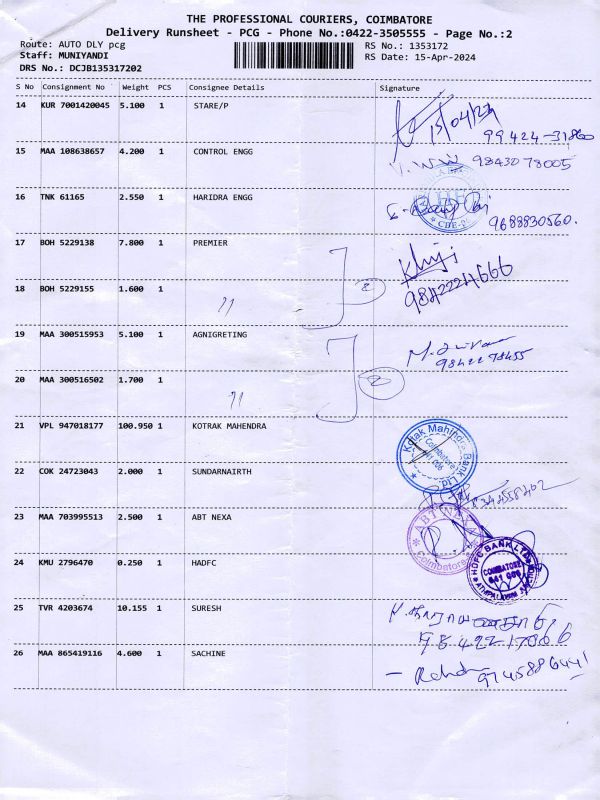 THE PROFESSIONAL COURIERS, COIMBATORE
Delivery Runsheet - PCG - Phone No.:0422-3505555 - Page No.:2
Route: AUTO DLY pcg RS No.: 1353172
Staff: MUNIYANDI RS Date: 15-Apr-2024
DRS No.: DCJB135317202
S No Consignment No Weight PCS Consignee Details Signature
14 KUR 7001420045 5.100 1 STARE/P
15/04/24
99424-31860
15 MAA 108638657 4.200 1 CONTROL ENGG
9843078005
16 TNK 61165 2.550 1 HARIDRA ENGG
9688830560.
17 BOH 5229138 7.800 1 PREMIER
9842224666
18 BOH 5229155 1.600 1 〃 2
19 MAA 300515953 5.100 1 AGNIGRETING
20 MAA 300516502 1.700 1 〃 2
21 VPL 947018177 100.950 1 KOTRAK MAHENDRA
Kotak Mahindra Bank Ltd.
Coimbatore
641 006
22 COK 24723043 2.000 1 SUNDARNAIRTH
23 MAA 703995513 2.500 1 ABT NEXA
ABT NEXA
Coimbatore
24 KMU 2796470 0.250 1 HADFC
HDFC BANK LTD
COIMBATORE
641 006
25 TVR 4203674 10.155 1 SURESH
26 MAA 865419116 4.600 1 SACHINE
9745886441